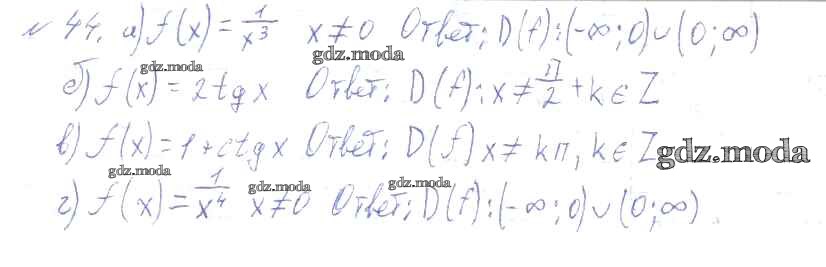 № 44. а) f(x) = 1/x³ x ≠ 0 Ответ: D(f): (-∞; 0) ∪ (0; ∞)
gdz.moda gdz.moda
б) f(x) = 2tg x Ответ: D(f): x ≠ π/2 + k ∈ Z
в) f(x) = 1 + ctg x Ответ: D(f) x ≠ kπ, k ∈ Z
gdz.moda
gdz.moda gdz.moda gdz.moda
г) f(x) = 1/x⁴ x ≠ 0 Ответ: D(f): (-∞; 0) ∪ (0; ∞)